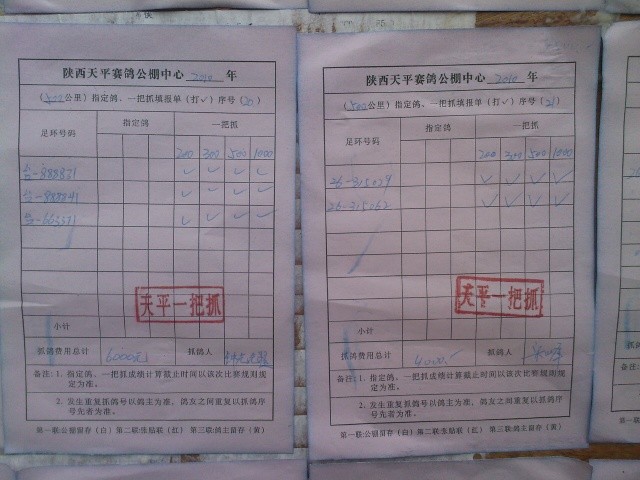 陕西天平赛鸽公棚中心 2010 年
(500公里) 指定鸽、一把抓填报单 (打✓) 序号 (20)
足环号码 指定鸽 一把抓
200 300 500 1000
台-888831 ✓ ✓ ✓ ✓
台-888841 ✓ ✓ ✓ ✓
台-663371 ✓ ✓ ✓ ✓
天平一把抓
小计
抓鸽费用总计 6000元 抓鸽人
备注: 1. 指定鸽、一把抓成绩计算截止时间以该次比赛规则规
定为准。
2. 发生重复抓鸽号以鸽主为准、鸽友之间重复以抓鸽序
号先者为准。
第一联:公棚留存 (白) 第二联:张贴联 (红) 第三联:鸽主留存 (黄)
陕西天平赛鸽公棚中心 2010 年
(500公里) 指定鸽、一把抓填报单 (打✓) 序号 (21)
足环号码 指定鸽 一把抓
200 300 500 1000
26-315029 ✓ ✓ ✓ ✓
26-315062 ✓ ✓ ✓ ✓
天平一把抓
小计
抓鸽费用总计 4000.- 抓鸽人
备注: 1. 指定鸽、一把抓成绩计算截止时间以该次比赛规则规
定为准。
2. 发生重复抓鸽号以鸽主为准、鸽友之间重复以抓鸽序
号先者为准。
第一联:公棚留存 (白) 第二联:张贴联 (红) 第三联:鸽主留存 (黄)